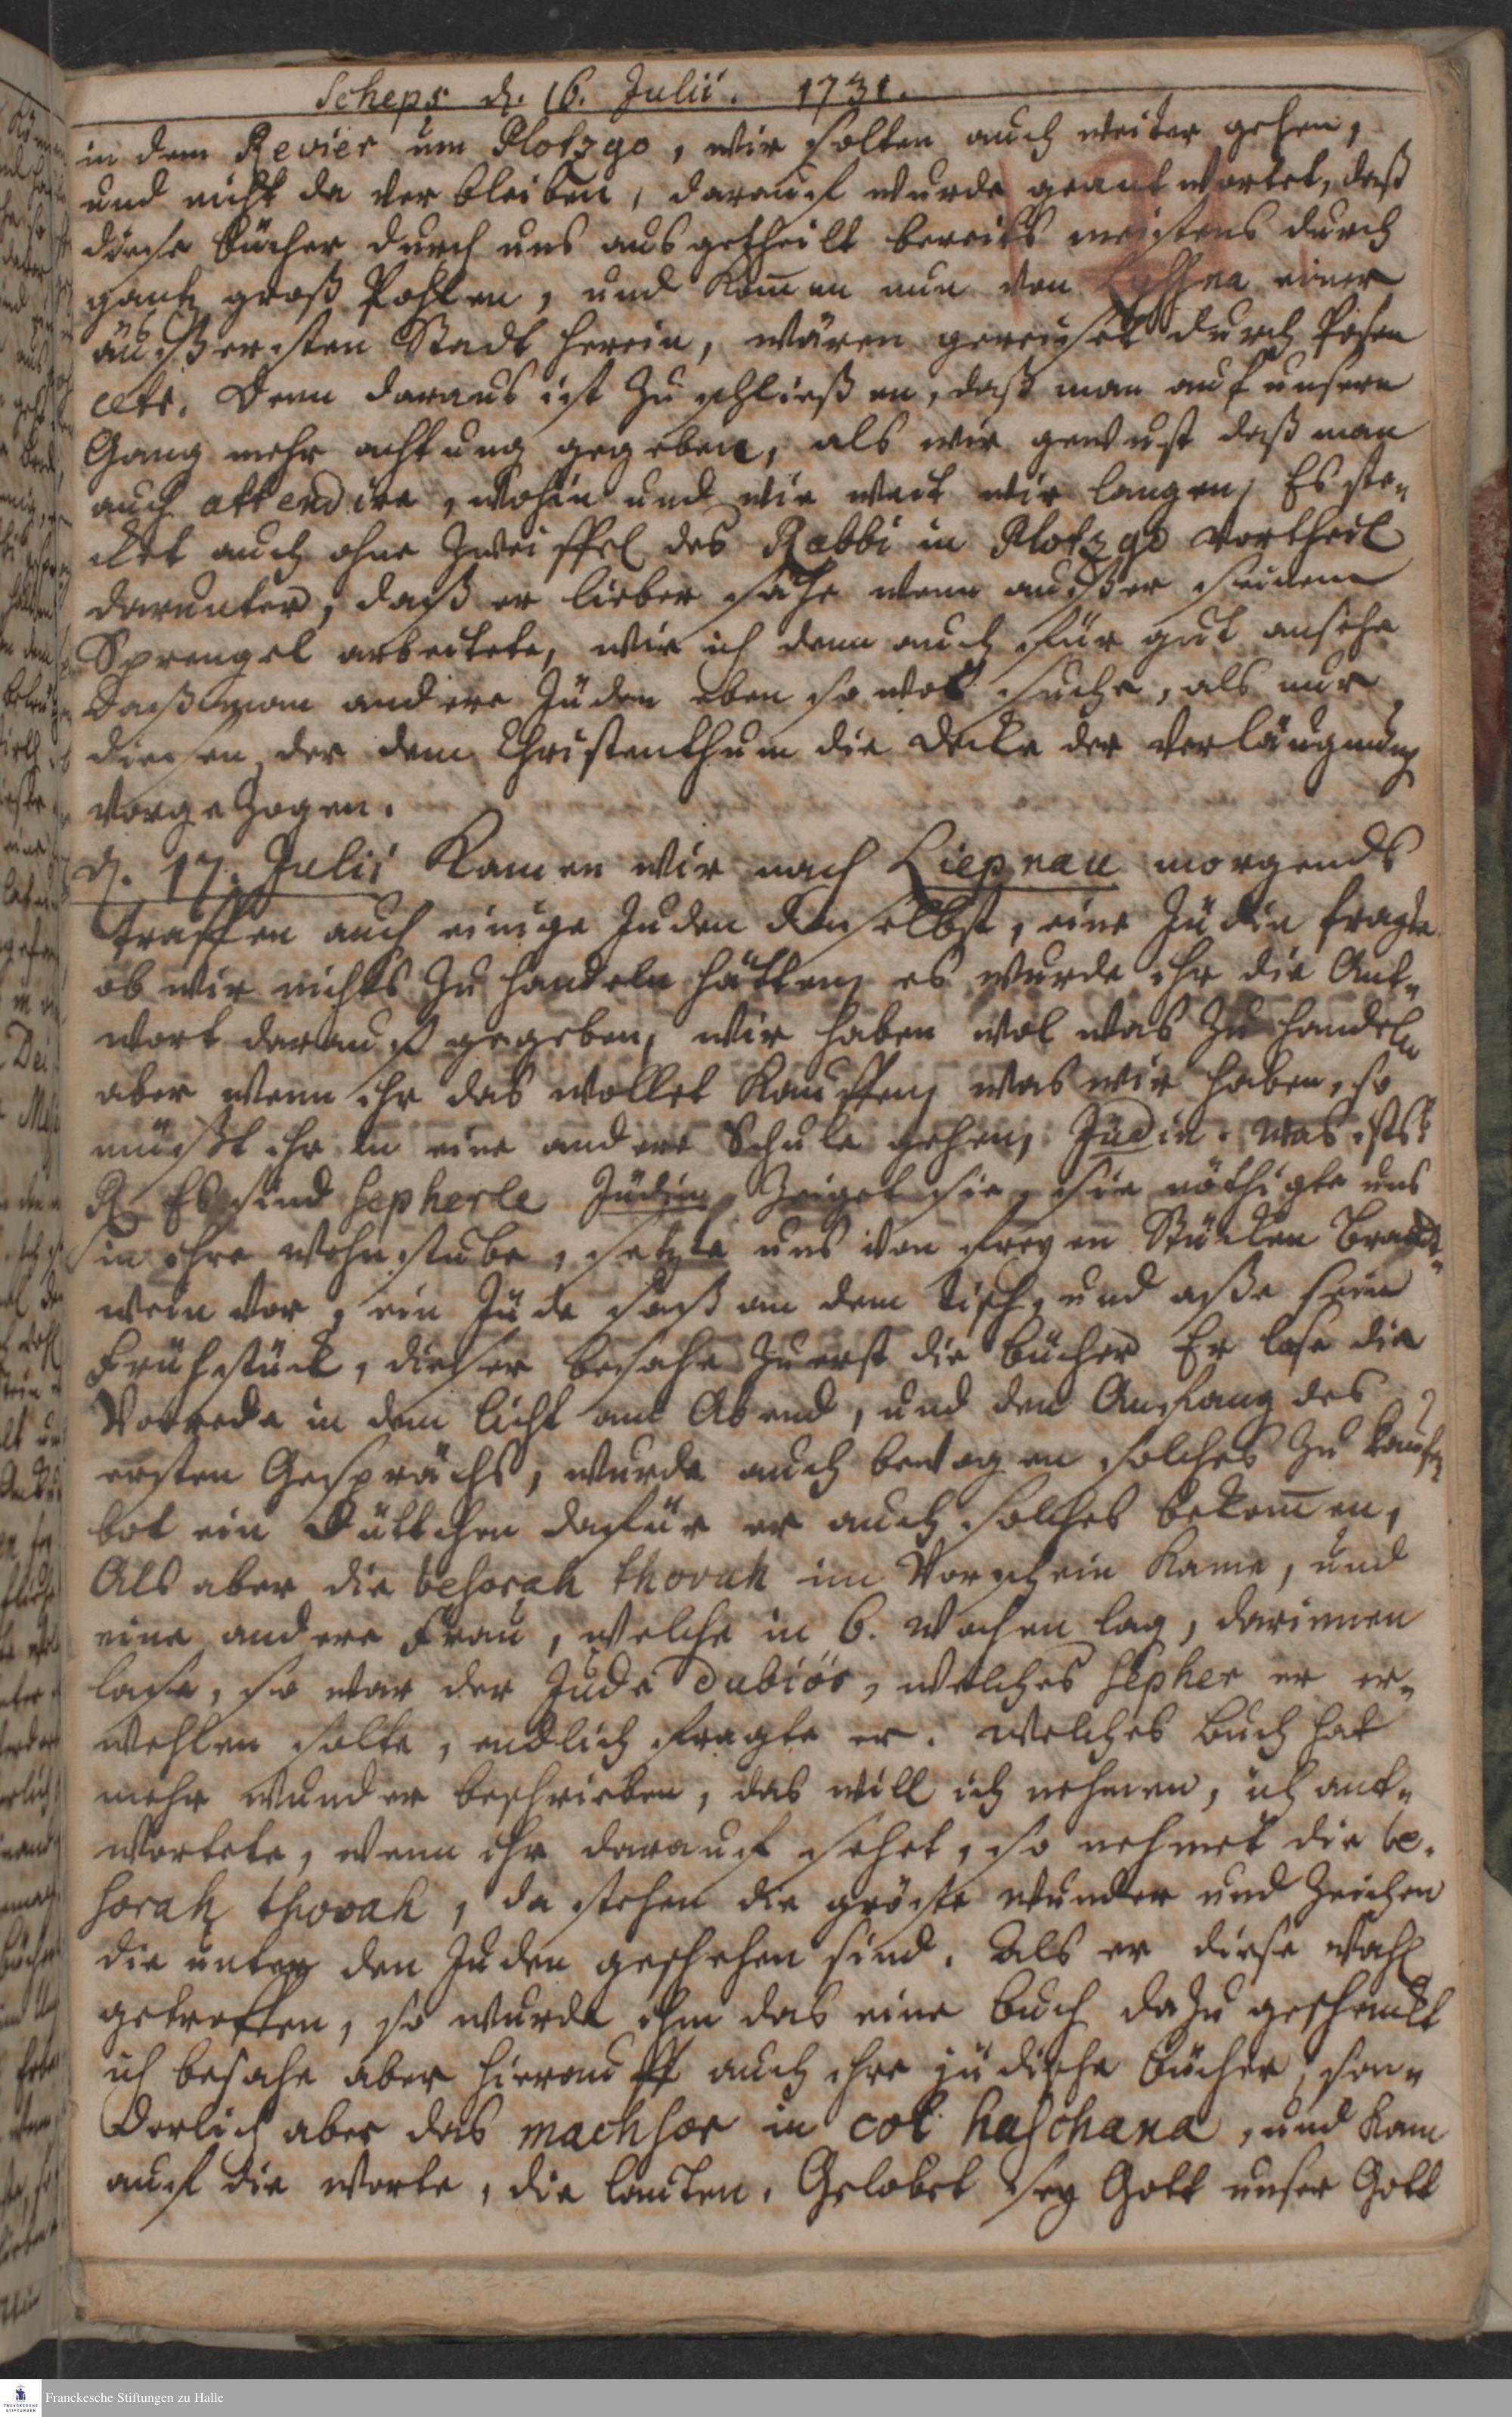 Scheps d. 16. Julii. 1731.
in dem Revier um Plotzgo, wir solten auch weiter gehen,
und nicht da verbleiben, darauf wurde geantwortet, daß
diese bücher durch uns ausgetheilt bereits meistens durch
gantz groß Pohlen, und kom̅en nun von Lyssna einer
äußersten Stadt herein, wären gereiset durch Posen
cetr. Denn daraus ist zu schließen, daß man auf unsern
Gang mehr achtung gegeben, als wir gewust daß man
auch attendire, wohin und wie weit wir langen, Es ste„
cket auch ohne zweiffel des Rabbi in Plotzgo Vortheil
darunter, daß er lieber sähe wenn außer seinem
Sprengel arbeitete, wie ich denn auch für gut ansehe
daß man andere Jüden eben so wol suche, als nur
diesen, der dem Christenthum die decke der Verläugnung
vorgezogen.
d. 17. Julii Kamen wir nach Liepnau morgends
traffen auch einige Juden daselbst, eine Jüdin fragte
ob wir nichts zu handeln hätten, es wurde ihr die Ant„
wort darauf gegeben, wir haben wol was zu handeln
aber wenn ihr das wollet kauffen, was wir haben, so
müßt ihr in eine andere Schule gehen, Jüdin. was ists?
R. Es sind sepherle Jüdin, zeiget sie, sie nöthigte uns
in ihre wohnstube, setzte uns von freyen Stücken brandt„
wein vor, ein Jüde saß an dem tisch, und aße sein
frühstück, dieser besahe zuerst die bücher Er lase die
Vorrede in dem licht am Abend, und den Anfang des
ersten Gesprächs, wurde auch bewogen solches zu kaufen
bot ein Düttchen dafür er auch solches bekom̅en,
Als aber die besorah thovah im Vorschein kame, und
eine andere Frau, welche in 6. wochen lag, darinnen
lase, so war der Jude dubiös, welches sepher er er„
wehlen solte, endlich fragte er. welches buch hat
mehr wunder beschrieben, das will ich nehmen, ich ant„
wortete, wenn ihr darauf sehet, so nehmet die be„
sorah thovah, da stehen die gröste wunder und zeichen
die unter den Juden geschehen sind. Als er diese wahl
getroffen, so wurde ihm das eine buch dazu geschenckt
ich besahe aber hierauff auch ihre jüdische bücher, son„
derlich aber das machsor in col haschana, und kam
auf die worte, die lauten. Gelobet sey Gott unser Gott
Franckesche Stiftungen zu Halle